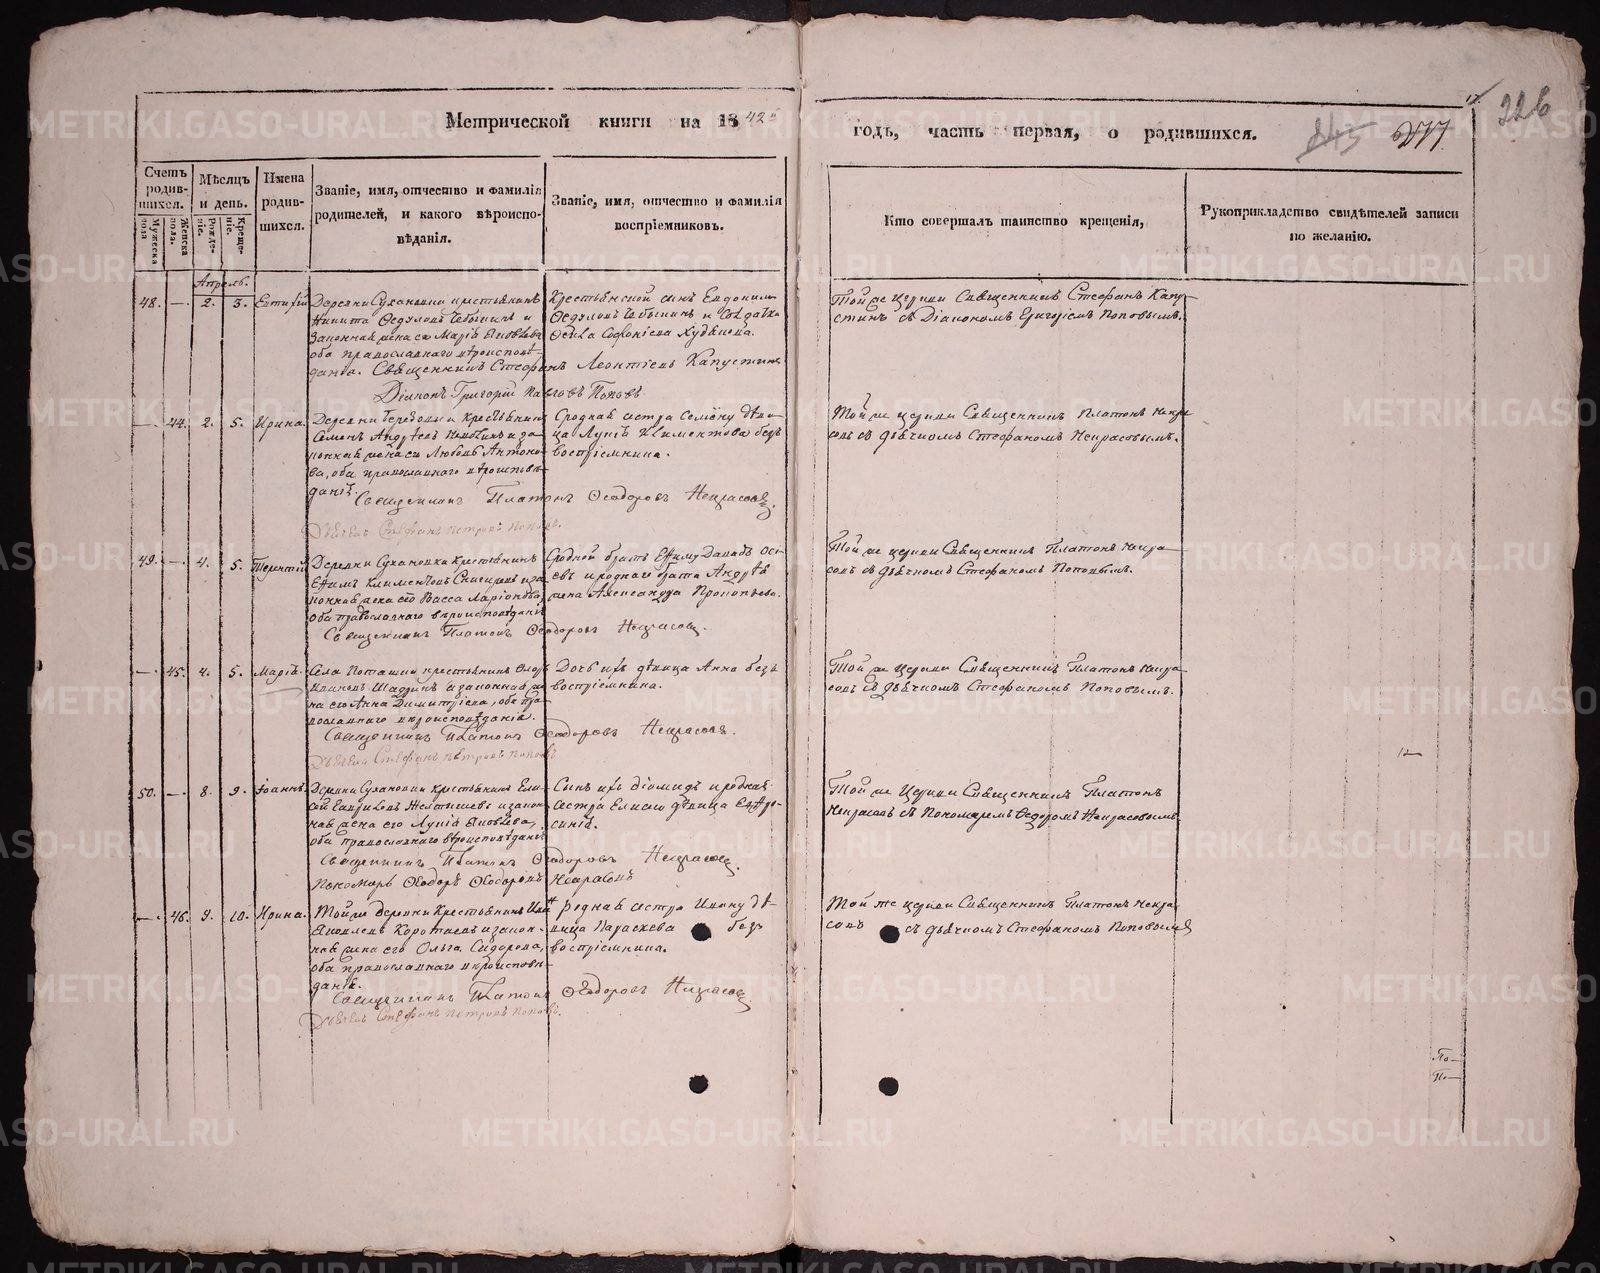 Метрической книги на 1842
годъ, часть первая, о родившихся.
243 277
226
Счетъ родив-шихся.
Мужеска пола
Женска пола.
Мѣсяцъ и день.
Рожде-нiе.
Креще-нiе.
Имена родив-шихся.
Званiе, имя, отчество и фамилiя родителей, и какого вѣроиспо-вѣданiя.
Званiе, имя, отчество и фамилiя воспрiемниковъ.
Кто совершалъ таинство крещенiя,
Рукоприкладство свидѣтелей записи по желанiю.
Апрель.
48. — 2. 3. Евтихiй
Деревни Сухановки крестьянинъ
Никита Ѳедуловъ и
законная жена его Марiя Яковлева
оба православнаго вѣроисповѣ-
данiя. Священникъ Стефанъ Леонтiевъ Капустинъ
Дiаконъ Григорiй Павловъ Поповъ
Крестьянской сынъ Евдокимъ
Ѳедуловъ и солдатка
Софонiева
Той же церкви Священникъ Стефанъ Капу-
стинъ съ Дiакономъ Григорiемъ Поповымъ.
— 44. 2. 5. Ирина.
Деревни крестьянинъ
Семенъ Андреевъ и за-
конная жена его Любовь Антоно-
ва, оба православнаго вѣроисповѣ-
данiя
Священникъ Платонъ Ѳеодоровъ Некрасовъ
Дьячекъ Стефанъ Петровъ Поповъ.
Сродная сестра Семену дѣви-
ца Климентова безъ
воспрiемника.
Той же церкви Священникъ Платонъ Некра-
совъ съ дьячкомъ Стефаномъ Некрасовымъ.
49. — 4. 5. Терентiй
Деревни Сухановки Крестьянинъ
Ефимъ Климентовъ и за-
конная жена его Васса Ларiонова,
оба православнаго вѣроисповѣданiя
Священникъ Платонъ Ѳеодоровъ Некрасовъ.
Сродной братъ Ефиму Давыдъ
и роднаго брата Андрея
жена Александра Прокопьева.
Той же церкви Священникъ Платонъ Некра-
совъ съ дьячкомъ Стефаномъ Поповымъ.
— 45. 4. 5. Марiя.
Села Поташки крестьянинъ
и законная же-
на его Анна Димитрiева, оба пра-
вославнаго вѣроисповѣданiя.
Священникъ Платонъ Ѳеодоровъ Некрасовъ.
Дьячекъ Стефанъ Петровъ Поповъ
Дочь ихъ дѣвица Анна безъ
воспрiемника.
Той же церкви Священникъ Платонъ Некра-
совъ съ дьячкомъ Стефаномъ Поповымъ.
50. — 8. 9. Iоаннъ.
Деревни Сухановки крестьянинъ Ели-
сей и закон-
ная жена его Яковлева,
оба православнаго вѣроисповѣданiя
Священникъ Платонъ Ѳеодоровъ Некрасовъ.
Пономарь Ѳеодоръ Ѳеодоровъ Некрасовъ
Сынъ ихъ Дiомидъ и родная
сестра Елисею дѣвица Ефро-
синiя.
Той же Церкви Священникъ Платонъ
Некрасовъ съ Пономаремъ Ѳедоромъ Некрасовымъ
— 46. 9. 10. Ирина.
Той же деревни Крестьянинъ Иванъ
Яковлевъ Коротаевъ и закон-
ная жена его Ольга Сидорова,
оба православнаго вѣроисповѣ-
данiя.
Священникъ Платонъ Ѳеодоровъ Некрасовъ
Дьячекъ Стефанъ Петровъ Поповъ.
родная сестра Ивану дѣ-
вица Параскева безъ
воспрiемника.
Той же церкви Священникъ Платонъ Некра-
совъ съ дьячкомъ Стефаномъ Поповымъ
По-
По-
METRIKI.GASO-URAL.RU